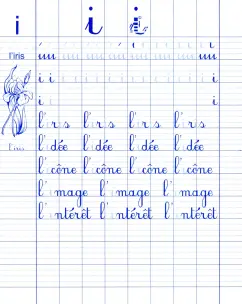 i i i i
l'iris
i i i
i i
L'iris
l'iris l'iris l'iris l'iris
l'idée l'idée l'idée l'idée
l'icône l'icône l'icône l'icône
l'image l'image l'image
l'intérêt l'intérêt l'intérêt